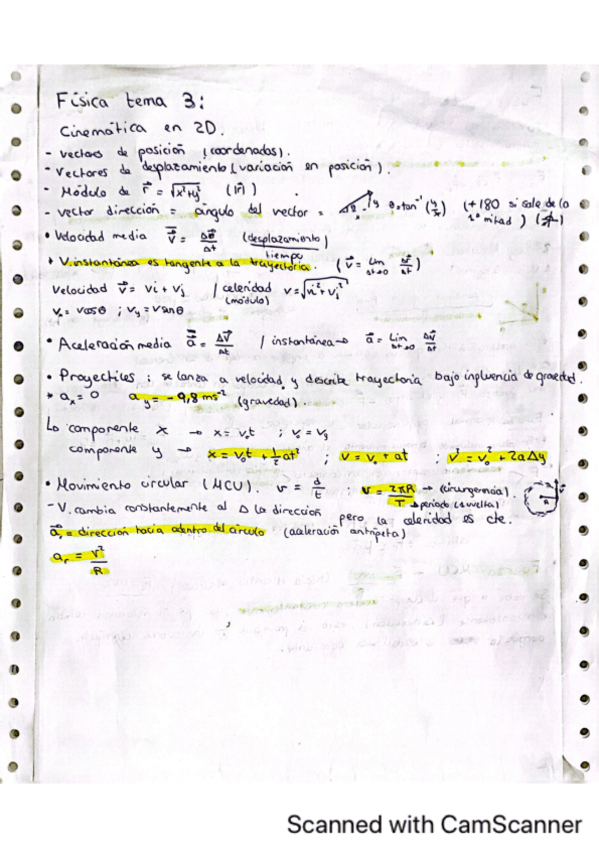 Física tema 3:
Cinemática en 2D.
- vectores de posición (coordenadas).
- Vectores de desplazamiento (variación en posición).
- Módulo de r⃗ = √(x²+y²) (|r⃗|)
- vector dirección = ángulo del vector = θ = tan⁻¹ (y/x) (+180 si sale de la 1ª mitad)
• Velocidad media v⃗ = Δr⃗/Δt (desplazamiento/tiempo)
* V. instantánea es tangente a la trayectoria. (v⃗ = lim Δt→0 Δr⃗/Δt)
Velocidad v⃗ = vi + vj / celeridad (módulo) v = √(vi² + vj²)
vₓ = v cosθ ; vy = v sinθ
• Aceleración media a⃗ = Δv⃗/Δt / instantánea → a⃗ = Lim Δt→0 Δv⃗/Δt
• Proyectiles ; se lanza a velocidad y describe trayectoria bajo influencia de gravedad.
* aₓ = 0 ay = -9,8 ms⁻² (gravedad).
↳ componente x → x = v₀t ; v₀ = vy
componente y → x = v₀t + 1/2 at² ; v = v₀ + at ; v² = v₀² + 2aΔy
• Movimiento circular (MCU). v = d/t ; v = 2πR/T → (circunferencia). → periodo (1 vuelta)
- V. cambia constantemente al Δ la dirección pero la celeridad es cte.
a⃗r = dirección hacia adentro del círculo (aceleración centrípeta)
ar = v²/R
Scanned with CamScanner